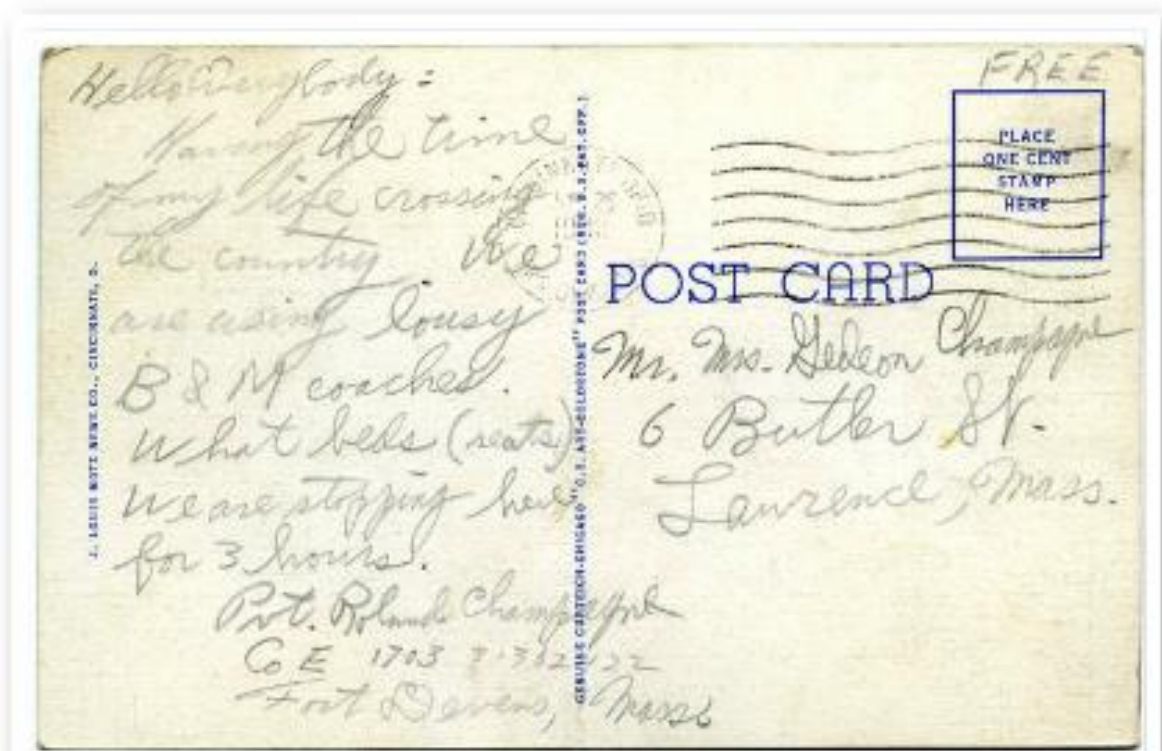 Hello Everybody:
Having the time
of my life crossing
the country. We
are using lousy
B & M coaches.
What beds (seats)
We are stopping here
for 3 hours.
Pvt. Roland Champagne
Co E 1703
Fort Devens, Mass
J. LOUIS MOTZ NEWS CO., CINCINNATI, O.
GENUINE CURTEICH-CHICAGO "C.T. ART-COLORTONE" POST CARD (REG. U.S. PAT. OFF.)
FREE
PLACE
ONE CENT
STAMP
HERE
POST CARD
Mr. Mrs. Gedeon Champagne
6 Butler St.
Lawrence, Mass.